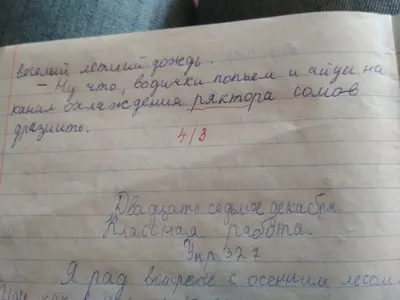 веселый летний дождь.
- Ну что, водички попьем и айда на
канал охлаждения ряктора сомов
дразнить.
4/3
Двадцать седьмое декабря
Классная работа.
Упр 327
Я рад встрече с осенним лесом.